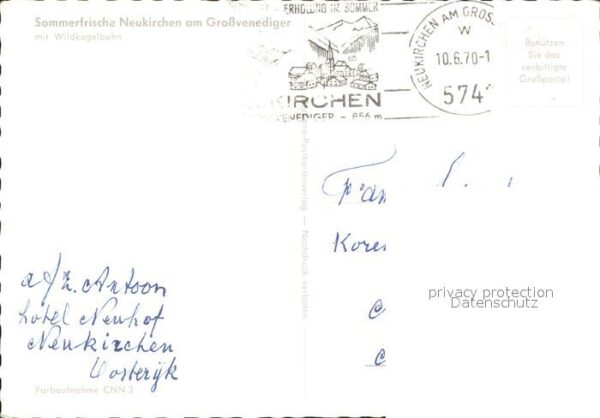 Sommerfrische Neukirchen am Großvenediger
mit Wildkogelbahn
ERHOLUNG IM SOMMER
KIRCHEN
VENEDIGER - 856 m
NEUKIRCHEN AM GROS
W
10.6.70-1
574
Benützen
Sie das
verbilligte
Grußporto!
Postkartenverlag — Nachdruck verboten
Fam
Kore
privacy protection
Datenschutz
afz. Antoon
hotel Neuhof
Neukirchen
Oosterijk
Farbaufnahme CNN 3